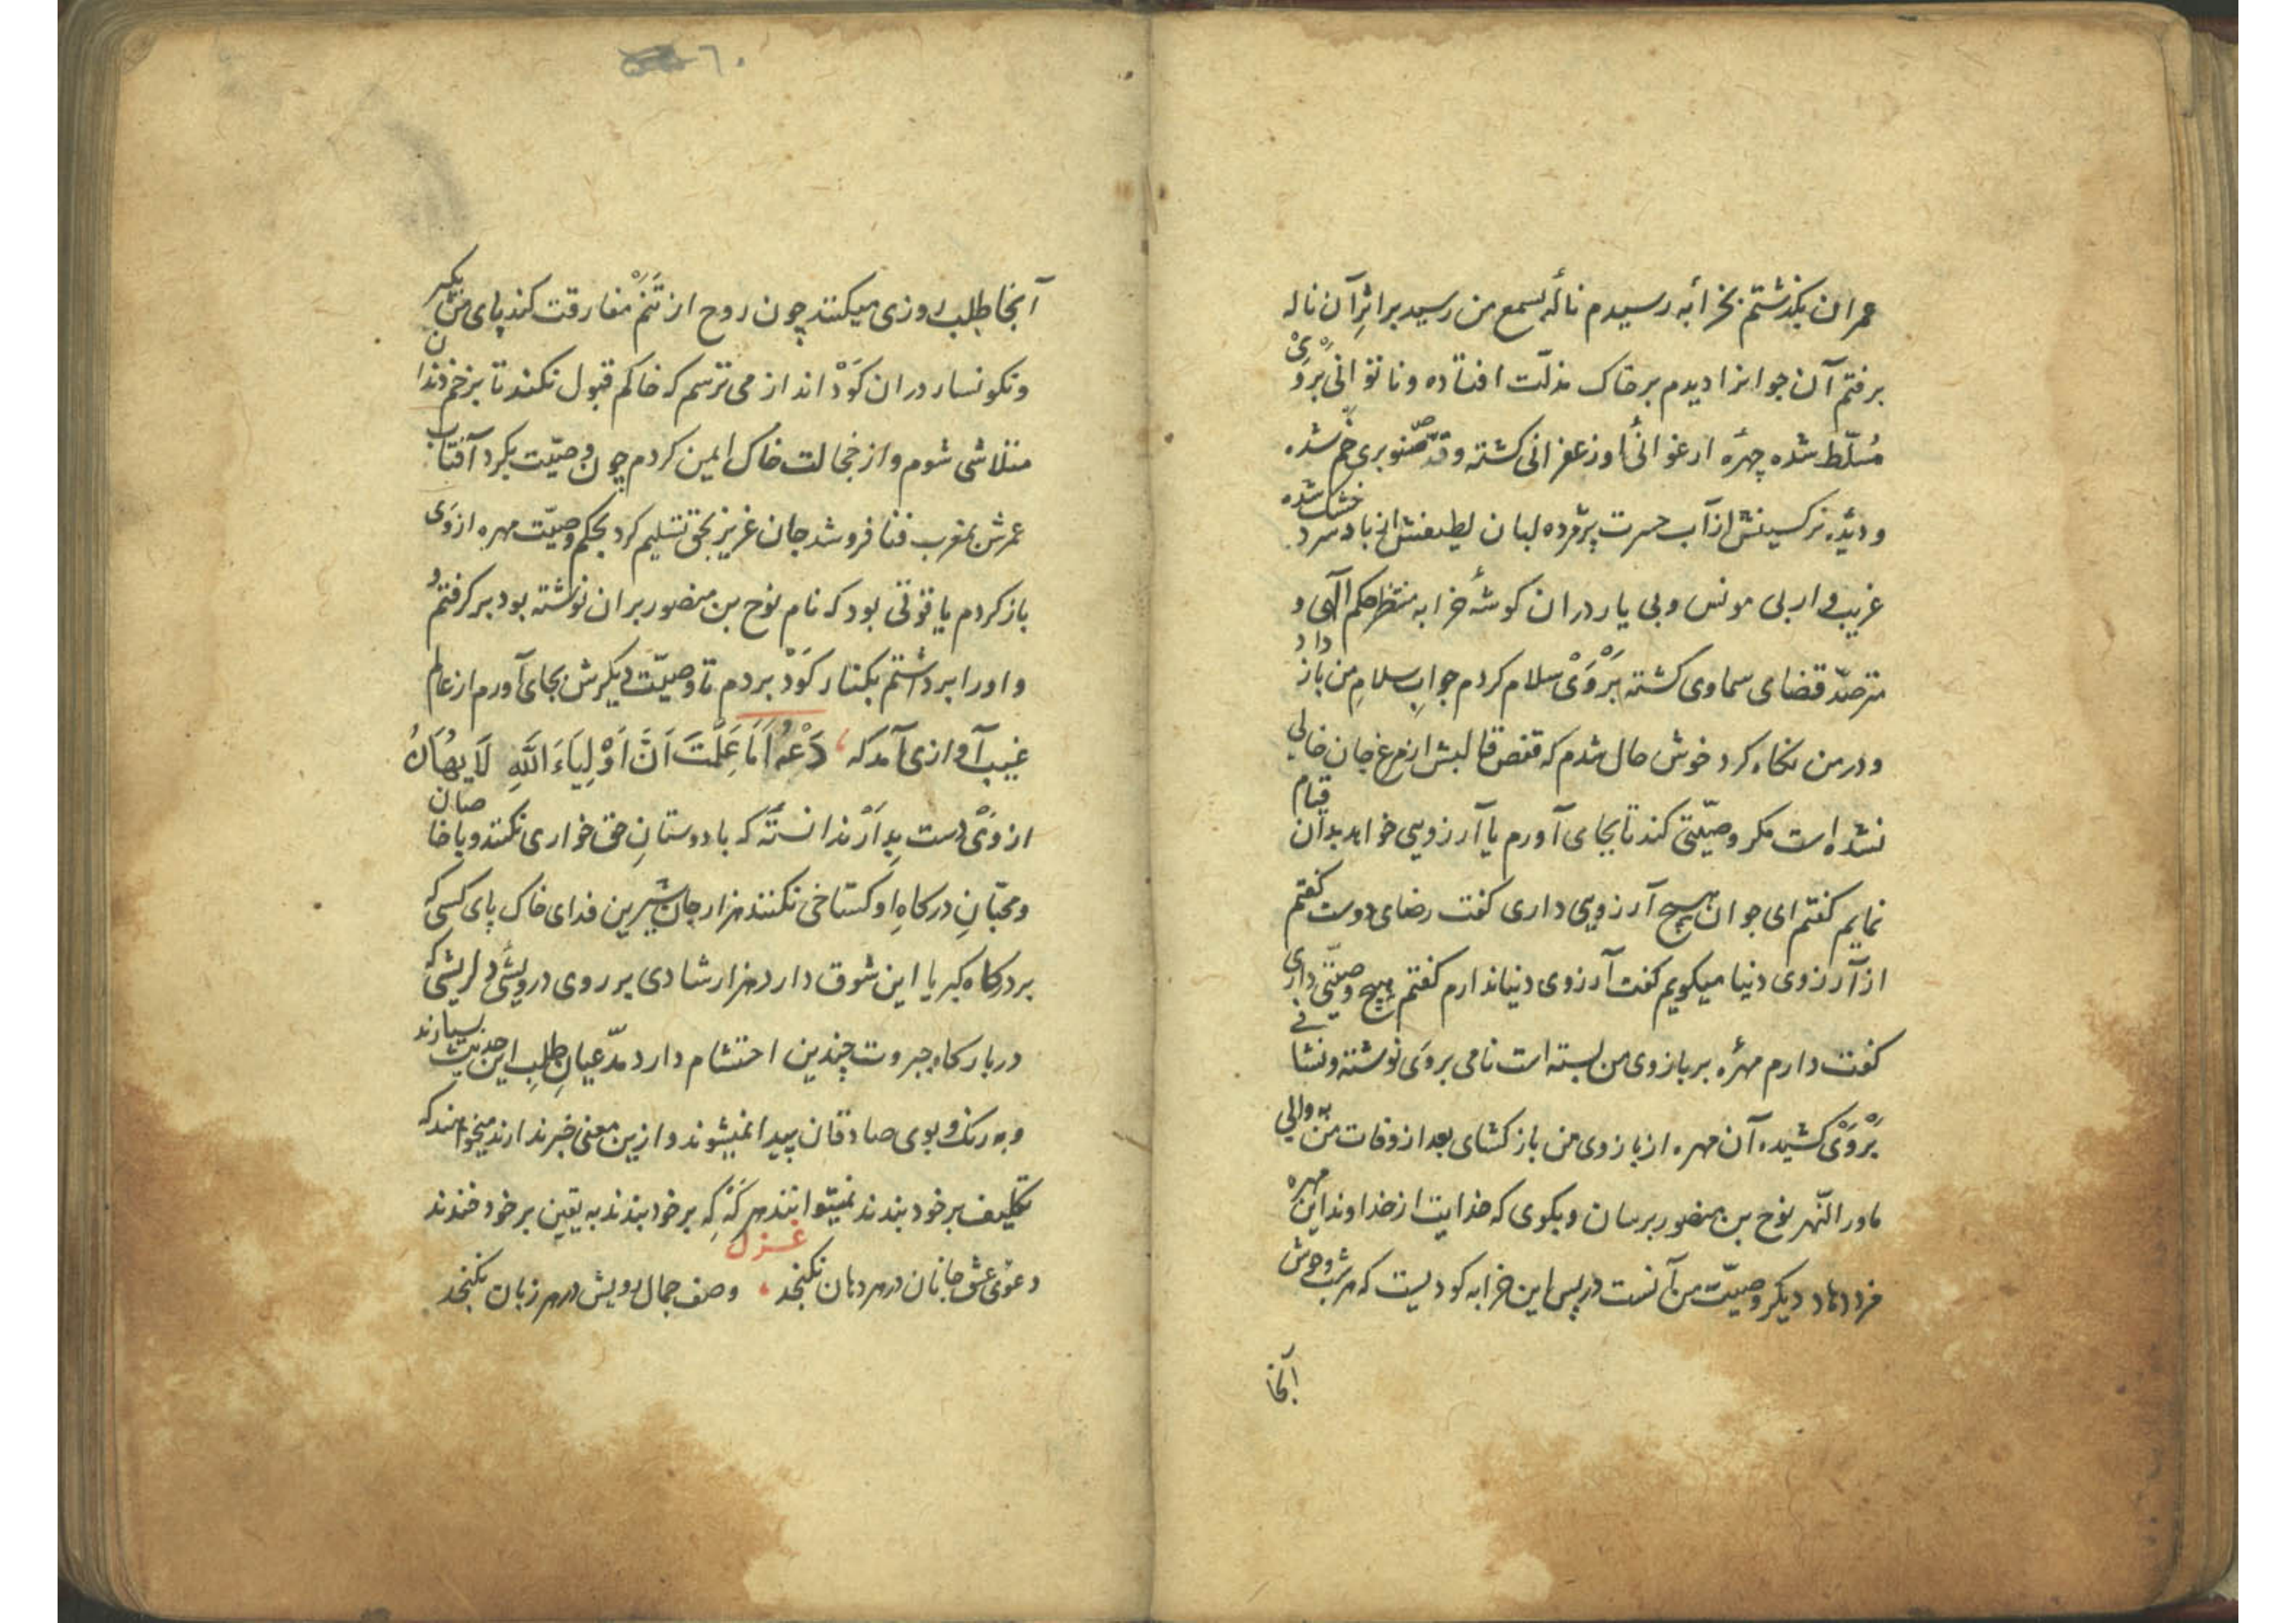 عمران بگذشتم بخرابهٔ رسیدم نالهٔ بسمع من رسید بر اثرِ آن ناله
برفتم آن جوانرا دیدم بر خاک مذلّت افتاده و ناتوانی بروَیْ
مُسلّط شده چهرهٔ ارغوانی او زعفرانی کشته و قدّ صنوبری خم شده
و دیدهٔ نرکسینش از آب حسرت پژمرده لبان لطیفش از باد سرد خشک شده
غریب وار بی مونس و بی یار در ان کوشهٔ خرابه منتظر حکم آلٓهی و
مترصّد قضای سماوی کشته بَرْوَیْ سلام کردم جوابِ سلامِ من باز داد
و در من نکاه کرد خوش حال شدم که قفص قالبش از مرغ جان خالی
نشده است مکر وصیّتی کند تا بجای آورم یا آرزویی خواهد بدان قیام
نمایم کفتم ای جوان هیچ آرزویی داری کفت رضای دوست کفتم
از آرزوی دنیا میکویم کفت آرزوی دنیا ندارم کفتم هیچ وصیّتی داری
کفت دارم مهرهٔ بر بازوی من بسته است نامی بروَی نوشته و نشانی
بَرْوَیْ کشیده آن مهره از بازوی من باز کشای بعد از وفات من به والی
ماوراالنّهر نوح بن منصور برسان و بکوی که خدایت از خداوند این مهره
مزد دهاد دیکر وصیّت من آنست در پس این خرابه کودیست که هر شب وحوش
آنجا
٦٠
آنجا طلب روزی میکنند چون روح از تَنَمْ مفارقت کند پای من بکیر
و نکونسار در ان کَوْد انداز می ترسم که خاکم قبول نکند تا بزخم دندان
متلاشی شوم و از خجالت خاک ایمن کردم چون وصیّت بکرد آفتاب
عمرش بمغرب فنا فرو شد جان عزیز بحق تسلیم کرد بحکم وصیّت مهره از وَی
باز کردم یاقوتی بود که نام نوح بن منصور بر ان نوشته بود بر کرفتم و
و اورا برداشتم بکنار کَوْد بردم تا وصیّت دیکرش بجای آورم از عالم
غیب آوازی آمد که دَعْهُ اَمَا عَلِمْتَ اَنَّ اَوْلِیَاءَ اللّٰهِ لَا یُهَانُ
از وَیْ دست بِدار ندانستهٔ که با دوستانِ حق خواری نکنند و با خاصان
و محبّانِ درکاهِ او کستاخی نکنند هزار جان شیرین فدای خاک پای کسی که
بر درکاه کبریا این شوق دارد هزار شادی بر روی درویشی دلریشی که
در بارکاه جبروت چندین احتشام دارد مدّعیانِ طلبِ این حدیث بسیارند
و به رنک و بوی صادقان پیدا نمیشوند و ازین معنی خبر ندارند میخواهند که
تکلیف بر خود بندند نمیتوانند هر کَهْ کِه بر خود بندند به یقین بر خود خندند
غزل
دعوی عشق جانان در هر دهان نکنجد وصف جمال رویش در هر زبان نکنجد